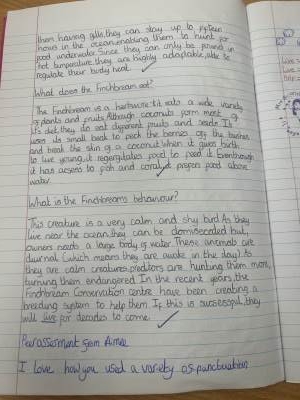 them having gills, they can stay up to fifteen
hours in the ocean, enabling them to hunt for
food underwater. Since they can only be found in
hot temperature, they are highly adaptable, able to
regulate their body heat.
What does the Finchbream eat?
The Finchbream is a herbivore: it eats a wide variety
of plants and fruits. Although coconuts form most of
it's diet, they do eat different fruits and seeds. It
uses its small beak to peck the berries off the bushes
and break the skin of a coconut. When it gives birth
to live young, it regergitates food to feed it. Eventhough
it has access to fish and coral, it prefers food above
water.
What is the Finchbreams behaviour?
This creature is a very calm and shy bird. As they
live near the ocean, they can be domisecated but,
owners need a large body of water. These animals are
diurnal (which means they are awake in the day). As
they are calm creatures, preditors are hunting them more,
turning them endangered. In the recent years, the
Finchbream Conservation centre have been creating a
breeding system to help them. If this is successful, they
will live for decades to come.
Peer assessment from Aimee
I love how you used a variety of punctuation